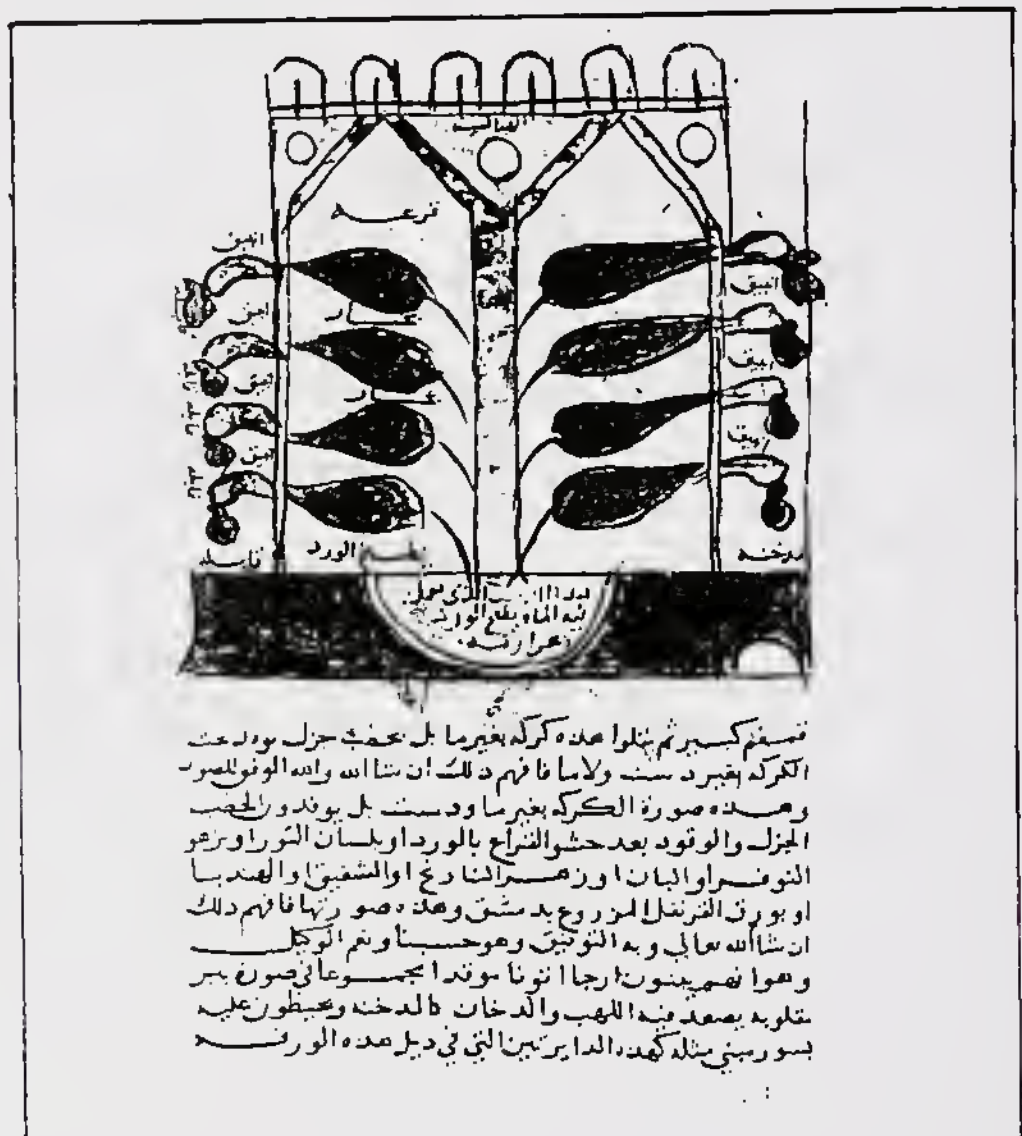 القالب
قرعه
انبيق
انبيق
انبيق
انبيق
عقار
عقار
انبيق
انبيق
انبيق
قابله
قابله
قابله
مدخنه
الورد
قابله
الذى يعمل
فيه الماء يطلع الورد
بحرارته
كبير ثم يتلوا هذه كركه بغير ما بل بحطب جزل موقد تحت
الكركه بغير دست ولا ما فافهم ذلك ان شا الله والله الموفق للصواب
وهذه صورة الكركه بغير ما ودست بل يوقدون الحطب
الجزل والوقود بعد حشو القراع بالورد او بلسان الثور او بزهو
النوفر او البان او زهر النارنج او الشقيق او الهندبا
او بورق القرنفل المزروع بدمشق وهذه صورتها فافهم ذلك
ان شا الله تعالي وبه التوفيق وهو حسبنا ونعم الوكيل
وهو انهم يبنون ارجا اتونا موقدا مجموعا في صورة بير
مقلوبه يصعد فيه اللهب والدخان كالدخنه ويحيطون عليه
بسور مبني مثله كهذه الدايرتين التي في ديل هذه الورقه